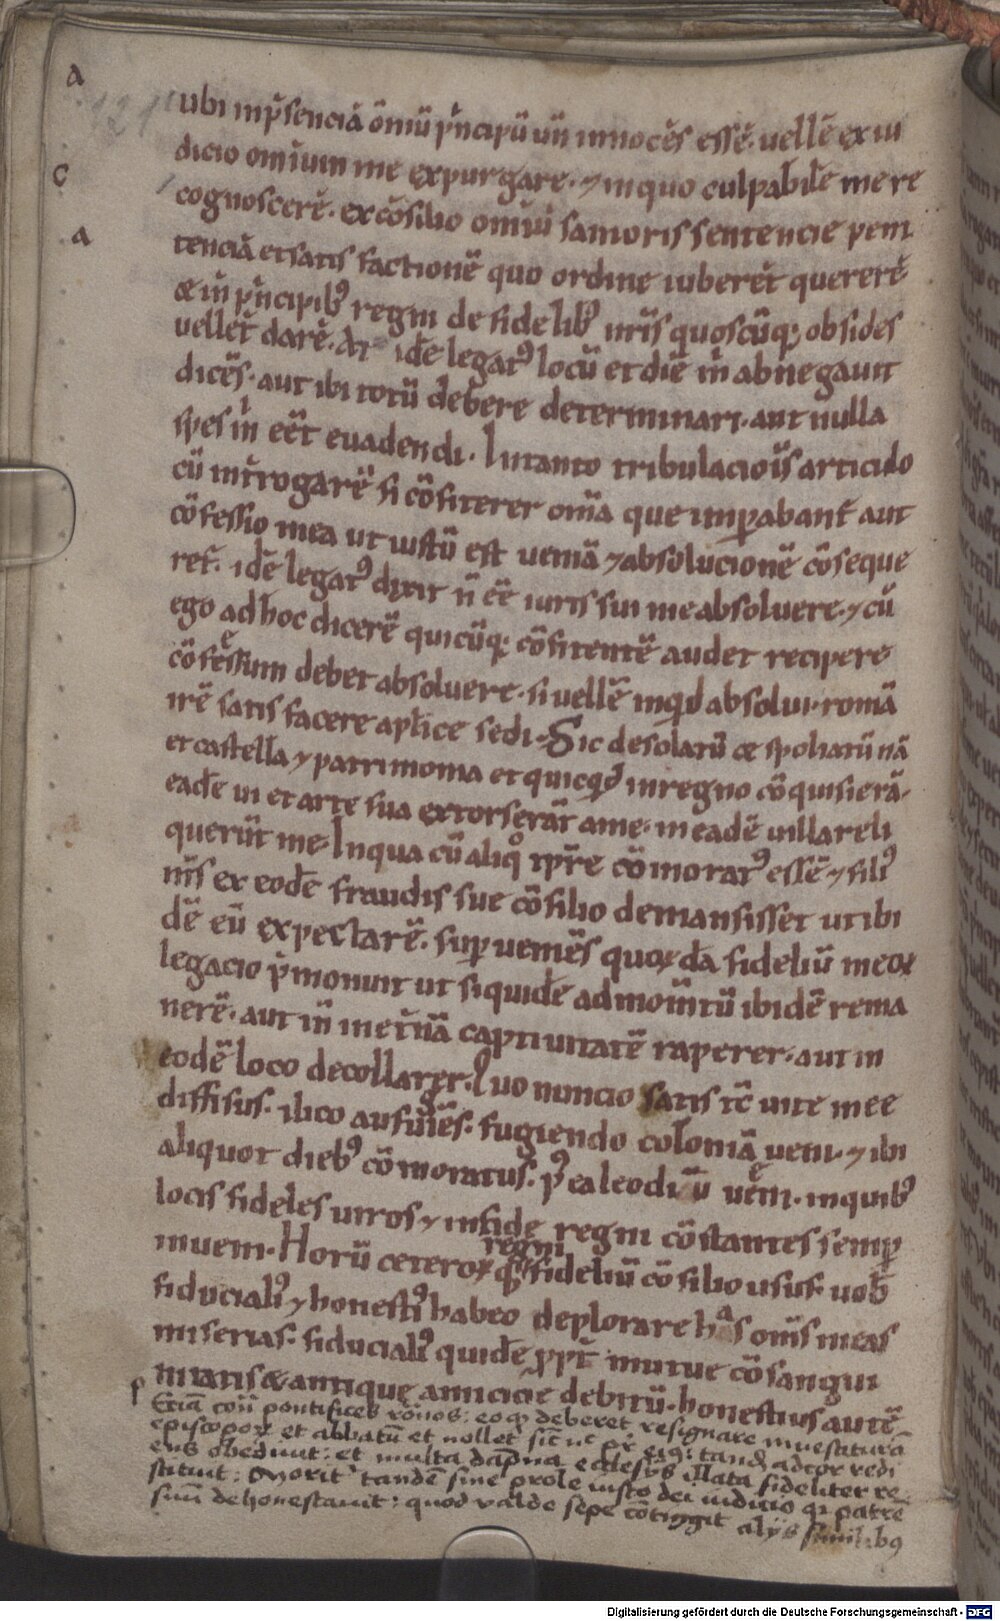 a
121
ubi inp̄senciā ōm̄iū p̄ncipū un̄ innocēs essē. uellē ex iu
c
dicio omnium me expurgare. ⁊ inquo culpabilē me re
cognoscerē. ex cōsilio om̄iū sanioris sentencie peni
a
tenciā et satis factionē quo ordine iuberēt quererē
& in̄ p̄ncipibꝰ regni de fidelibꝰ nr̄is quoscūq; obsides
uellet darē. At idē legatꝰ locū et diē in̄ abnegauit
dicēs. aut ibi totū debere determinari. aut nulla
spes in̄ eēt euadendi. In tanto tribulaciois̄ articulo
cū int̄rogarē si cōfiterer om̄ia que imꝑabant̄ aut
cōfessio mea ut iustū est ueniā ⁊ absolucionē cōseque
ret̄. idē legatꝰ dixit n̄ eē iuris sui me absoluere. ⁊ cū
ego ad hoc dicerē quicūq; cōfitentē audet recipere
cōfessum debet absoluere. si uellē inq̇d absolui. romā
irē satis facere aplīce sedi. Sic desolatū & spoliatū nā
et castella ⁊ patrimonia et quicq̇d in regno cōquisierā.
eadē ui et arte sua extorserāt a me. in eadē uilla reli
querūt me. In qua cū aliqͦ tp̄re cōmoratꝰ essē ⁊ filiꝰ
mīs ex eodē fraudis sue cōsilio demansisset ut ibi
dē eū expectarē. suꝑueniēs quoꝝdā fideliū meoꝝ
legacio p̄monuit ut si quidē ad mom̄tū ibidē rema
nerē. aut in̄ in et̄nā captiuitatē raperer. aut in
eodē loco decollarer. Quo nuncio satis tc̄ uite mee
diffisus. ilico aufugiēs. fugiendo coloniā ueni. ⁊ ibi
aliquot diebꝰ cōmoratus. pꝰea leodiū uēni. in quibꝰ
locis fideles uiros ⁊ in fide regni cōstantes semꝑ
inueni. Horū ceteroꝝ q; regni fideliū cōsilio usus. uob̄
fiducialiꝰ ⁊ honestiꝰ habeo deplorare has om̄s meas
miserias. fiducialiꝰ quidē ꝓpt̄ mutue cōsangui
nitatis & antique amicicie debitū. honestius autē
Etiā con̄ pontifices rōnos: eoq; deberet resignare inuestiturā
episcopoꝝ et abbatū et nollet sic̄ nc̄ pr̄ eiꝰ: tandē ad cor redi
ens obediuit: et multa dāpna ecclesijs illata fideliter re
stituit: Moritꝰ tandē sine prole iusto dei iudicio qi patrē
suū dehonestauit: quod valde sepe cōtingit alijs similibꝰ
Digitalisierung gefördert durch die Deutsche Forschungsgemeinschaft - DFG